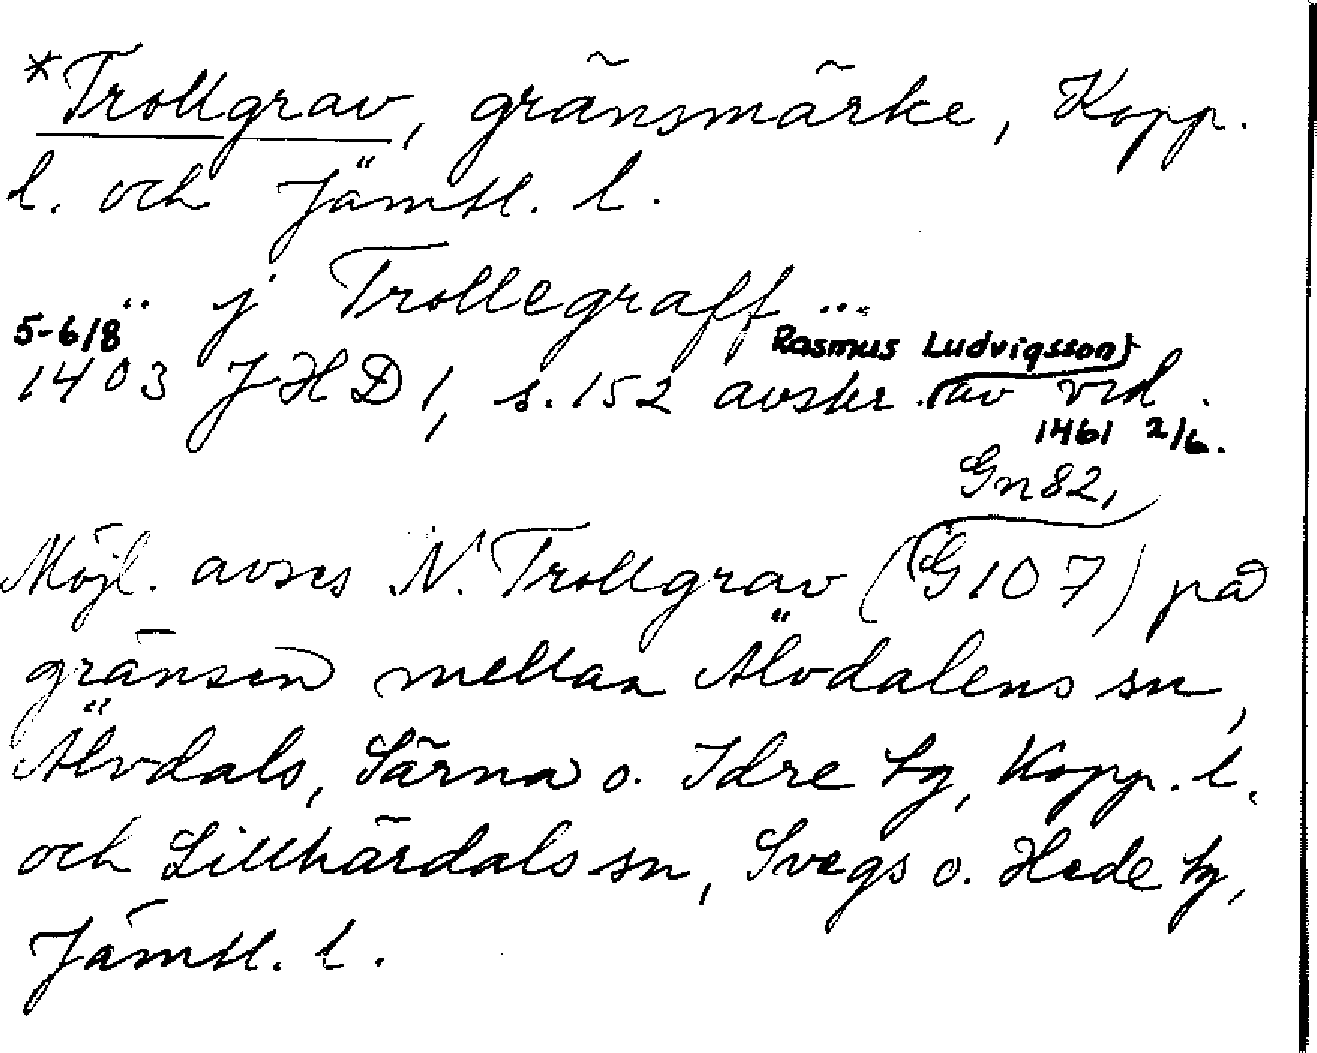 *Trollgrav, gränsmärke, Kopp.
l. och Jämtl. l.
... j Trollegraff ...
5-6/8
Rasmus Ludvigsson
1403 JHD 1, s. 152 avskr. av vid.
1461 2/6.
Gn82,
Möjl. avses N. Trollgrav (G107) på
gränsen mellan Älvdalens sn,
Älvdals, Särna o. Idre tg, Kopp. l.
och Lillhärdals sn, Svegs o. Hede tg,
Jämtl. l.